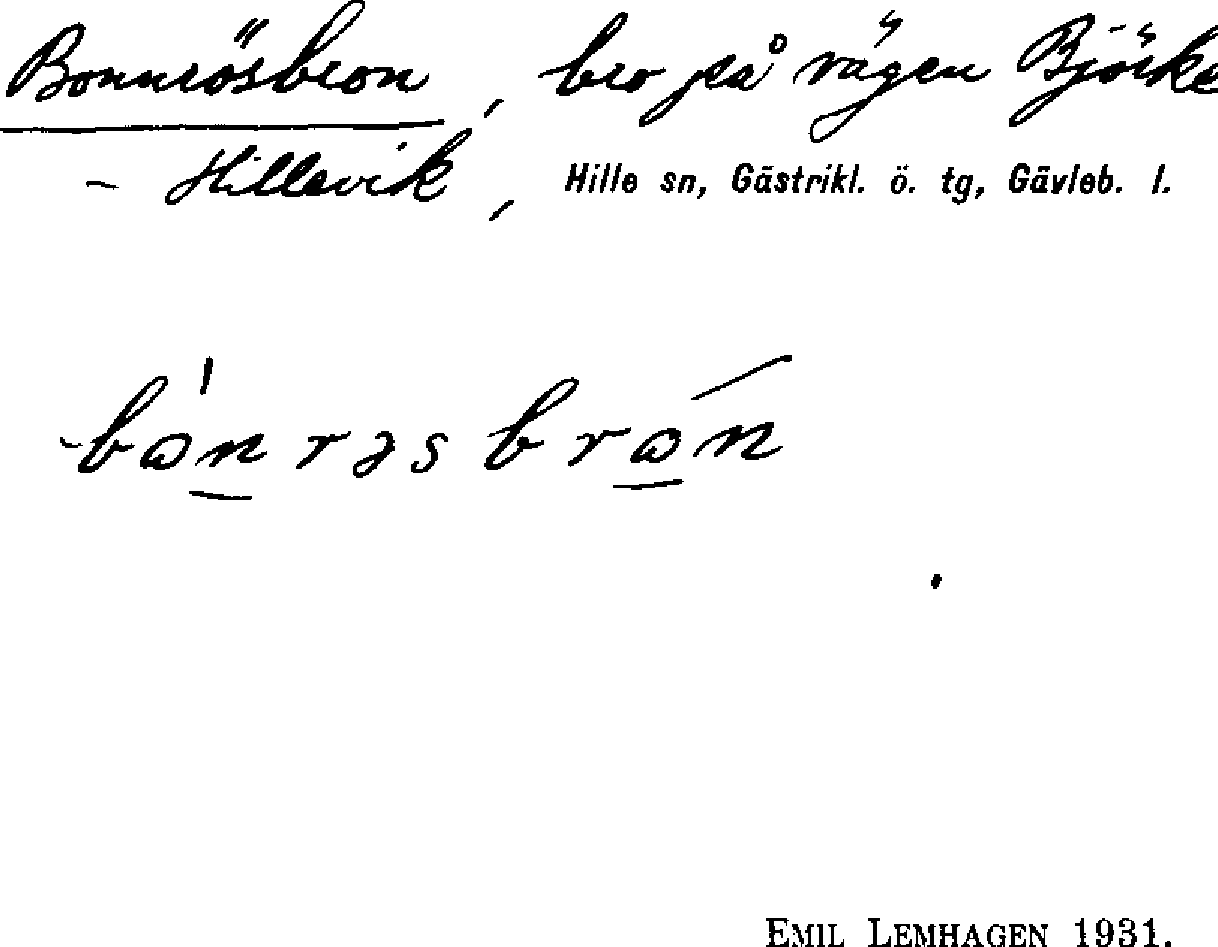 Bonnrösbron, bro på vägen Björke
- Hillevik, Hille sn, Gästrikl. ö. tg, Gävleb. l.
bɷ̀nrəsbrɷ́n
EMIL LEMHAGEN 1931.